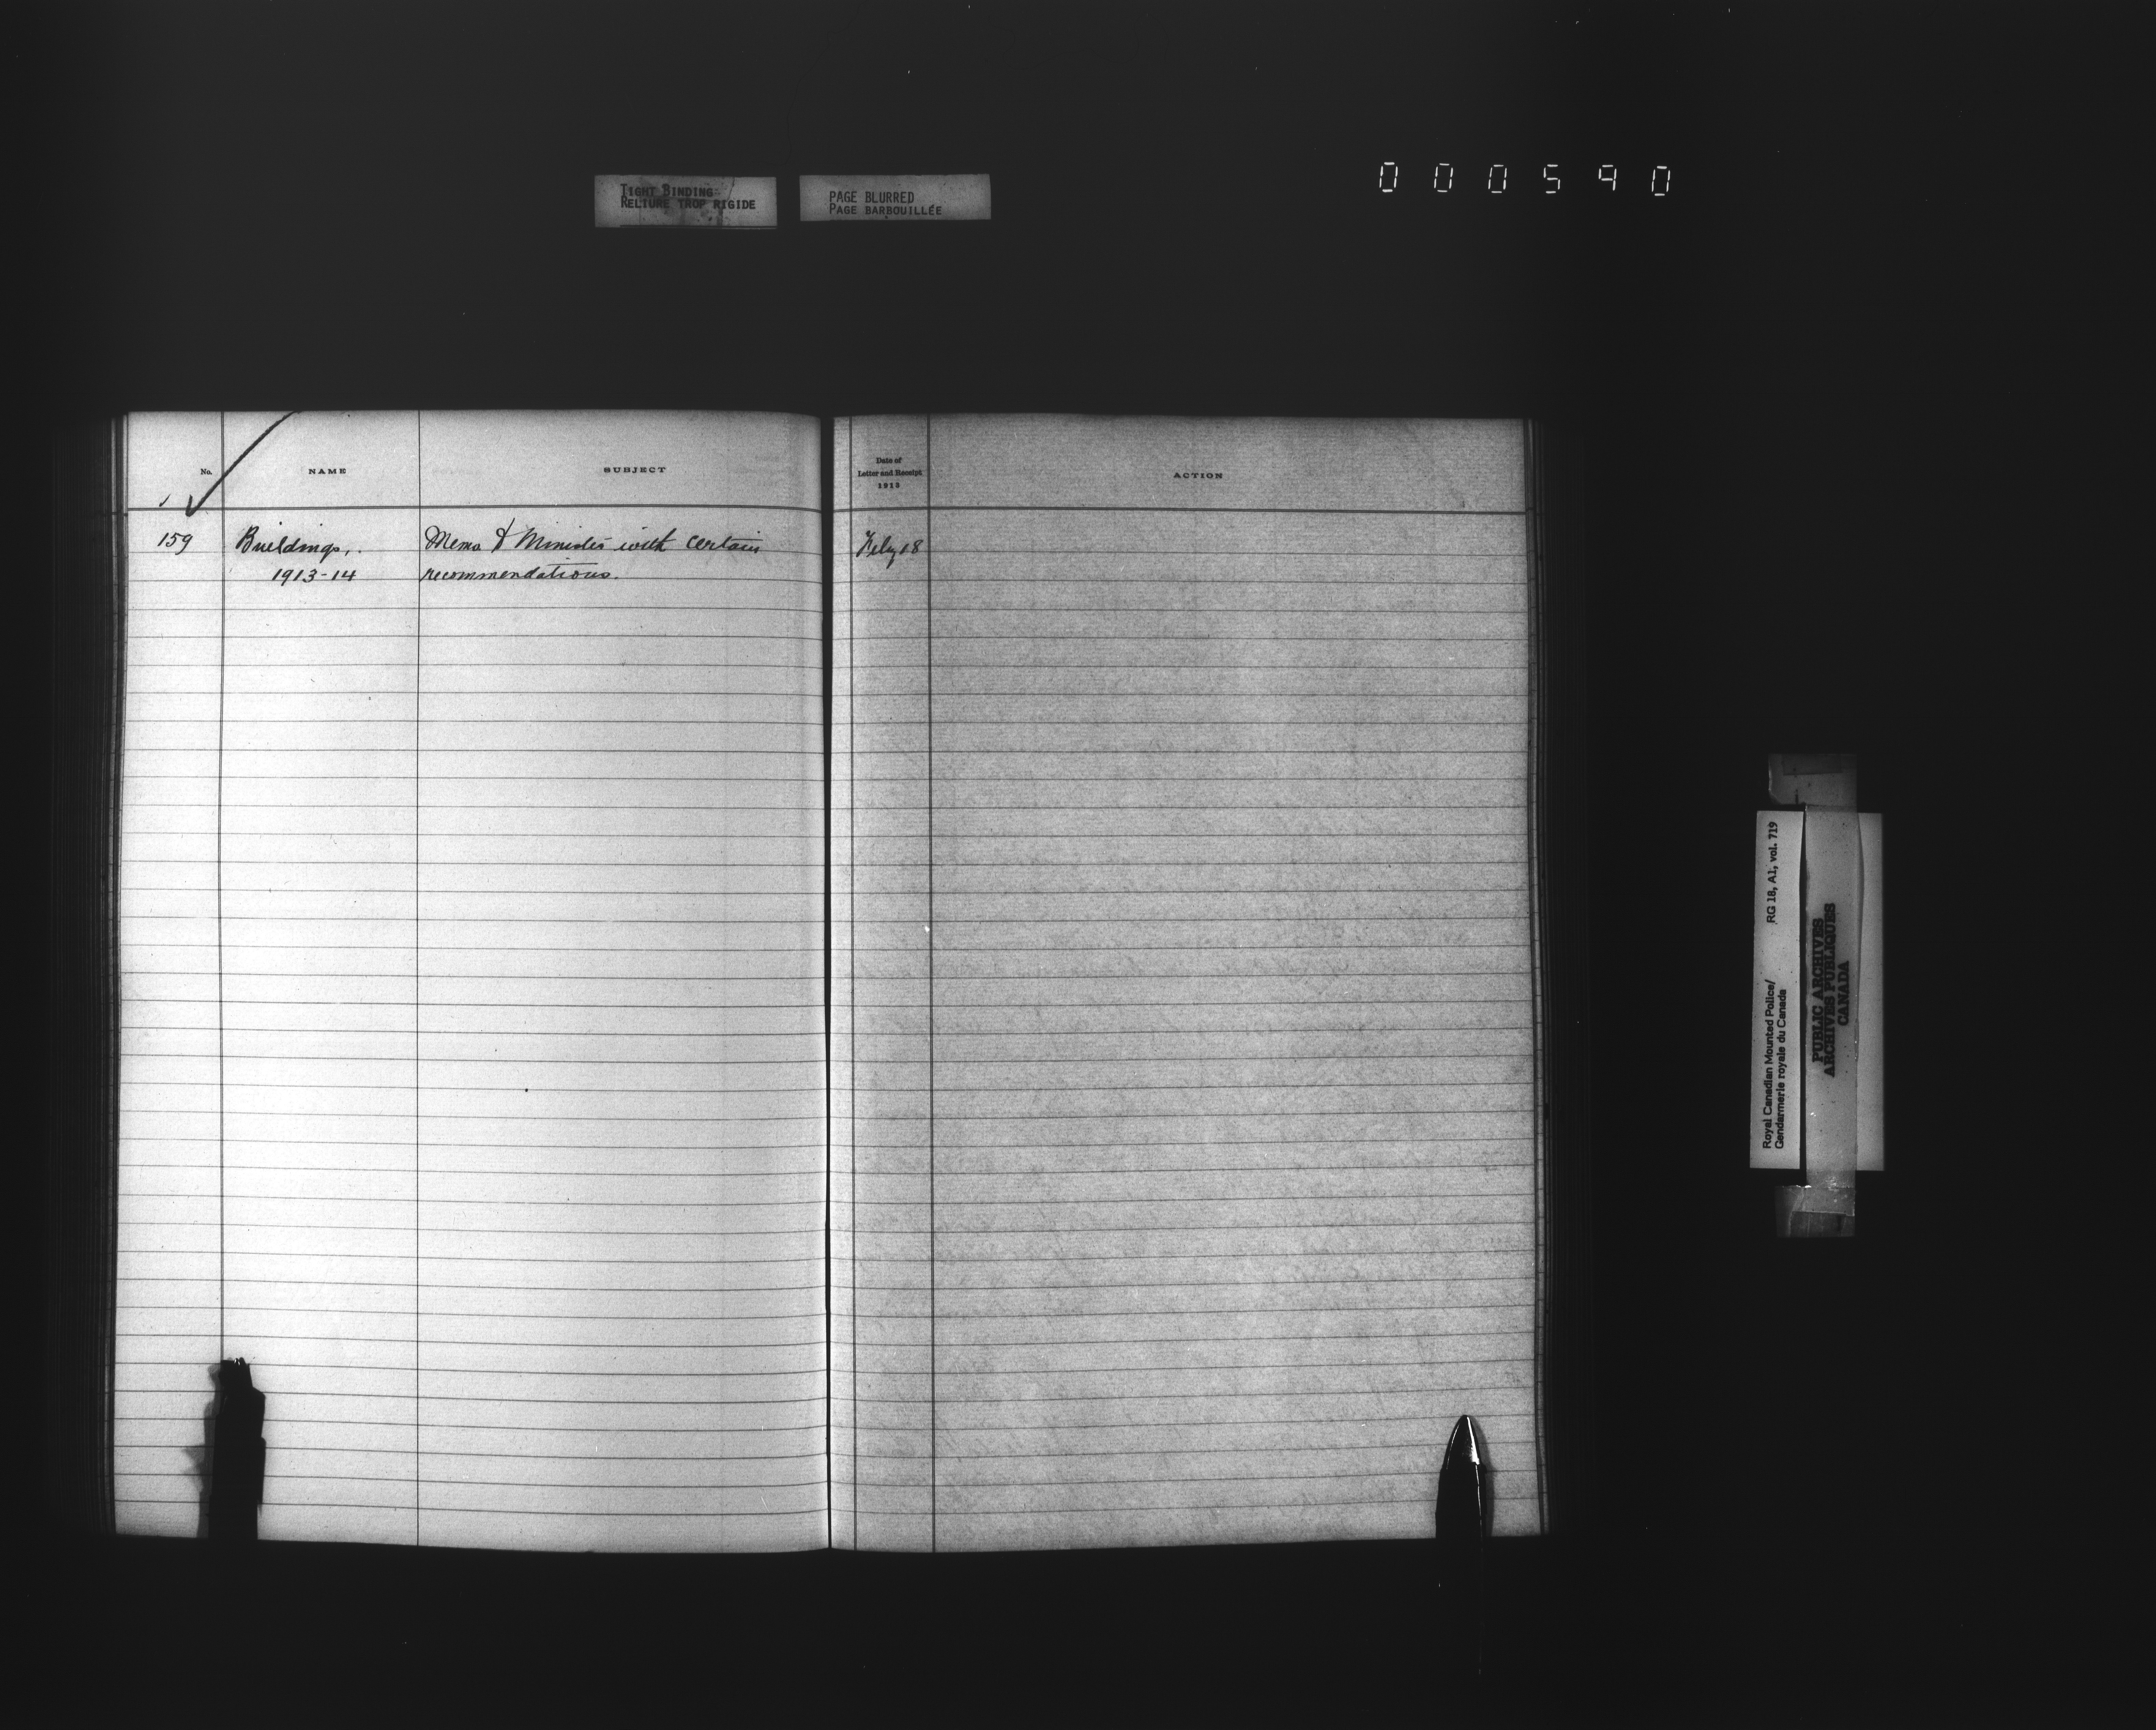 TIGHT BINDING
RELIURE TROP RIGIDE
PAGE BLURRED
PAGE BARBOUILLÉE
000590
No.
NAME
SUBJECT
Date of
Letter and Receipt
1913
ACTION
159 Buildings, Memo to Minister with certain Feby 18
1913-14 recommendations.
Royal Canadian Mounted Police/ RG 18, A1, vol. 719
Gendarmerie royale du Canada
PUBLIC ARCHIVES
ARCHIVES PUBLIQUES
CANADA